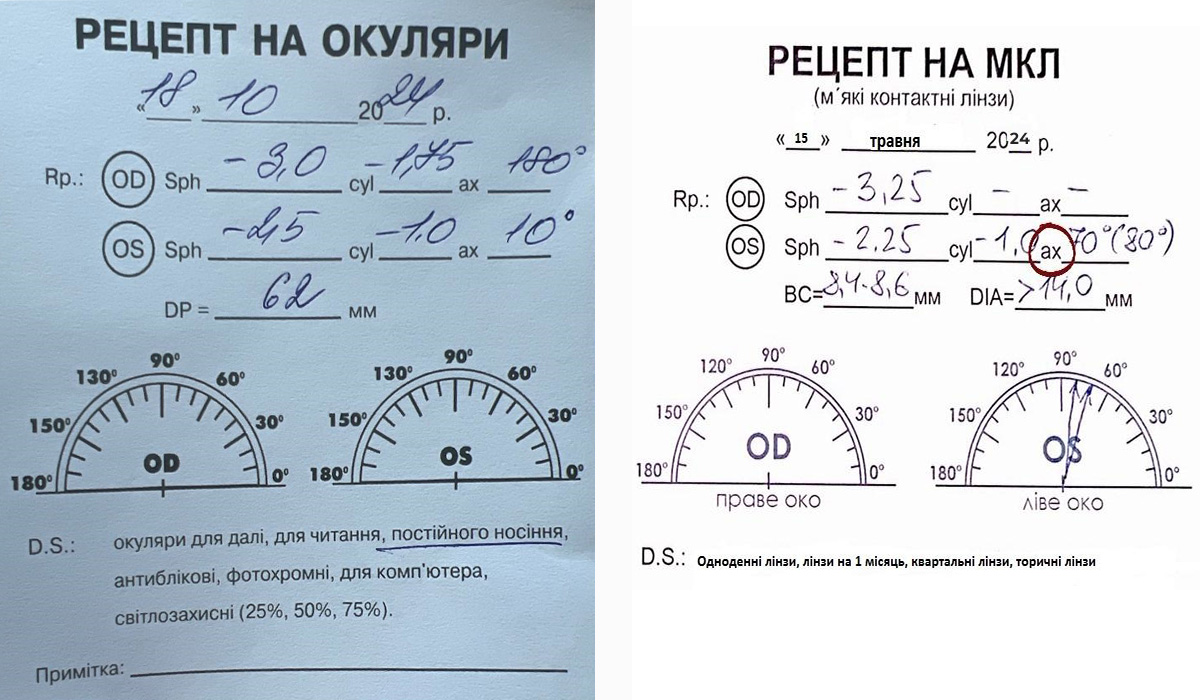 РЕЦЕПТ НА ОКУЛЯРИ
«18» 10 2024 р.
Rp.: OD Sph -3,0 cyl -1,75 ax 180°
OS Sph -2,5 cyl -1.0 ax 10°
DP = 62 мм
90° 130° 60° 150° 30° 180° 0° OD
90° 130° 60° 150° 30° 180° 0° OS
D.S.: окуляри для далі, для читання, постійного носіння,
антиблікові, фотохромні, для комп'ютера,
світлозахисні (25%, 50%, 75%).
Примітка:
РЕЦЕПТ НА МКЛ
(м´які контактні лінзи)
«15» травня 2024 р.
Rp.: OD Sph -3,25 cyl - ax -
OS Sph -2.25 cyl -1,0 ax 70°(80°)
BC=8,4-8,6 мм DIA=>14,0 мм
90° 120° 60° 150° 30° 180° 0° OD
праве око
90° 120° 60° 150° 30° 180° 0° OS
ліве око
D.S.: Одноденні лінзи, лінзи на 1 місяць, квартальні лінзи, торичні лінзи